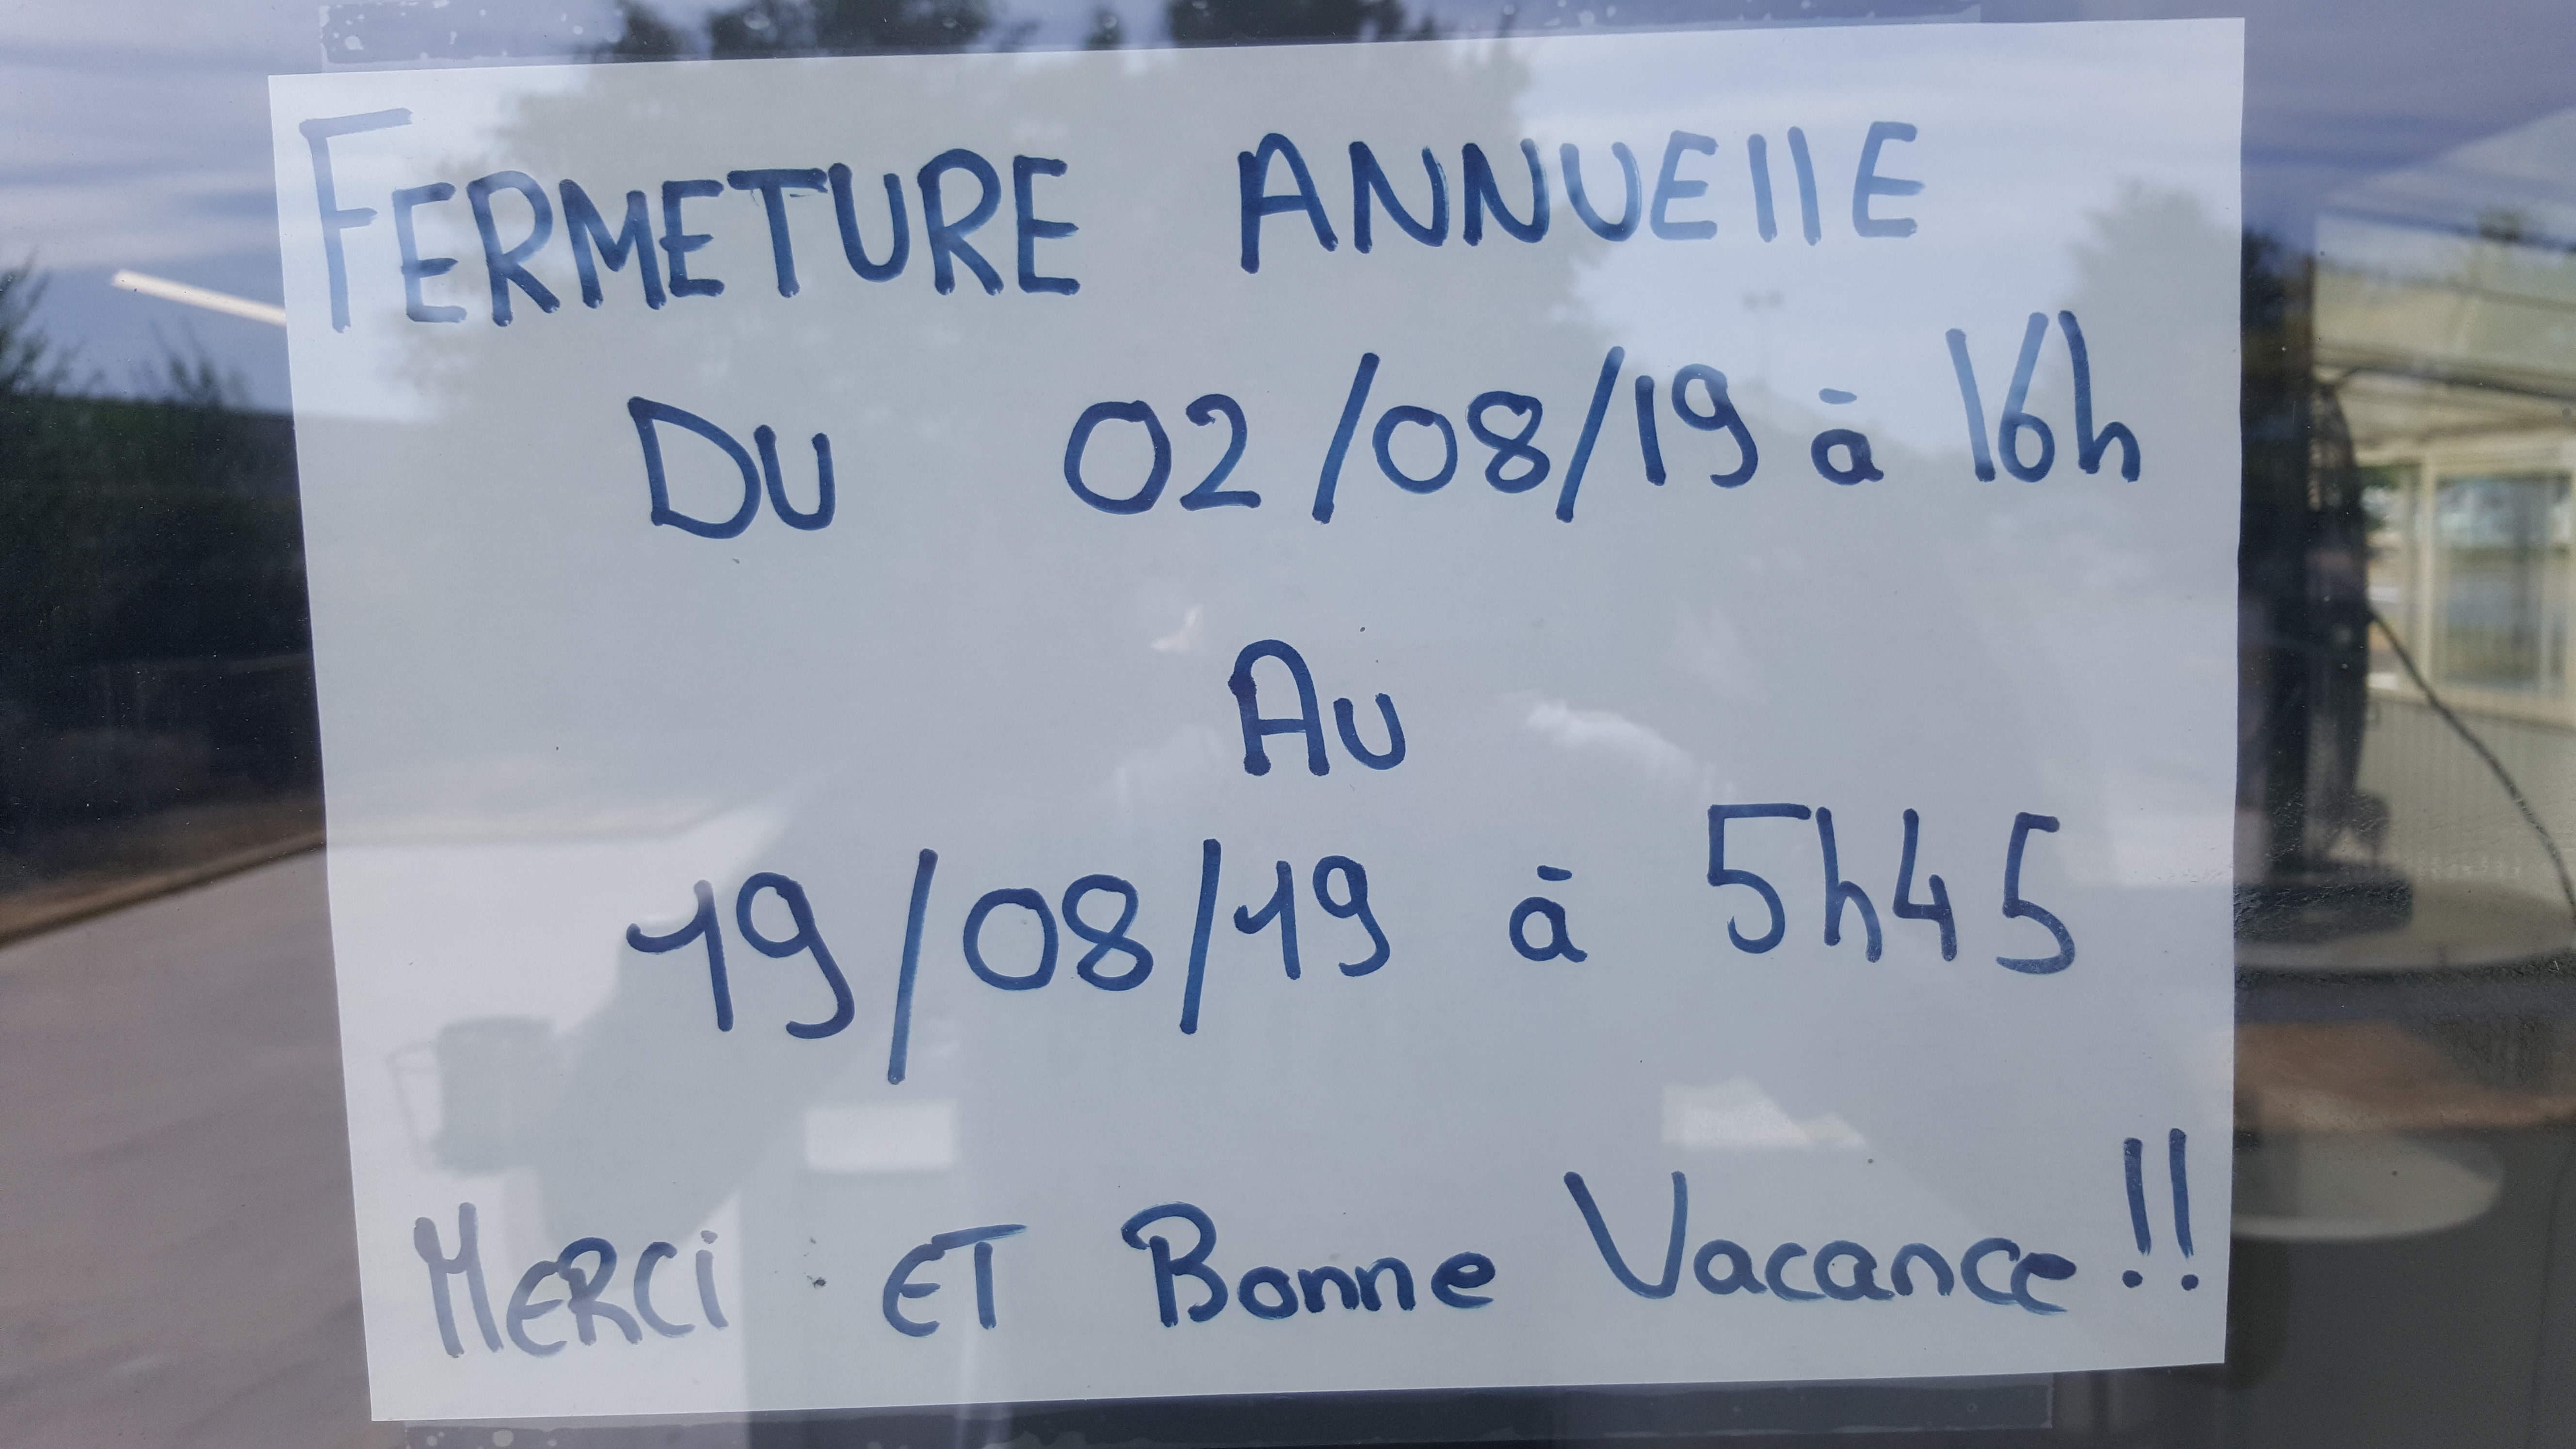 FERMETURE ANNUEllE
DU 02/08/19 à 16h
AU
19/08/19 à 5h45
MERCi ET Bonne Vacance !!